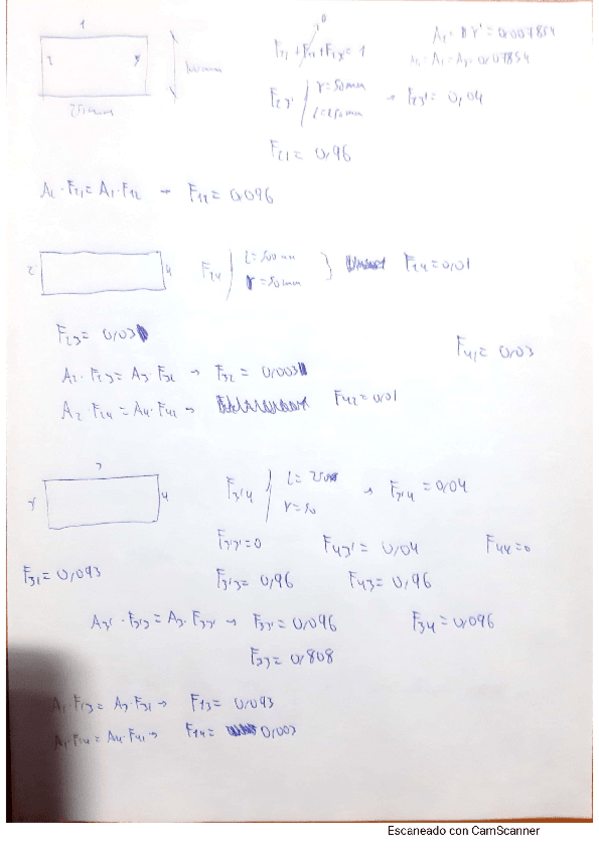 1
2
3'
100mm
250mm
0
F21 + F22 + F23' = 1
A2 = πr² = 0,007854
A1 = A3 = 0,07854
F23' / r = 50mm
L = 250mm → F23' = 0,04
F21 = 0,96
A2 · F21 = A1 · F12 → F12 = 0,096
2
4
F24 / L = 500mm
r = 50mm } F24 = 0,01
F23 = 0,03
F41 = 0,03
A2 · F23 = A3 · F32 → F32 = 0,003
A2 · F24 = A4 · F42 → F42 = 0,01
3
3'
4
F3'4 / L = 250
r = 50 → F3'4 = 0,04
F3'3' = 0 F43' = 0,04 F44 = 0
F31 = 0,093
F3'3 = 0,96 F43 = 0,96
A3' · F3'3 = A3 · F33' → F33' = 0,096 F34 = 0,096
F33 = 0,808
A1 · F13 = A3 · F31 → F13 = 0,093
A1 · F14 = A4 · F41 → F14 = 0,003
Escaneado con CamScanner